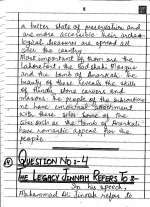 a better state of preservation and
are more accessible their archaeo
logical treasures are spread all
over the country.
Most important of them are the
Lahore fort, the Badshahi Mosque
and the tomb of Anarkali. The
beauty of these reveals the skills
of Hindu, stone carvers and
masons. The people of the subcontine
nt have emotional attachment
with these sites. Some of the
sites such as the tomb of Anarkali
have romantic appeal for the
people.
QUESTION No :- 4
THE LEGACY JINNAH REFERS TO :-
In his speech,
Muhammad Ali Jinnah refers to